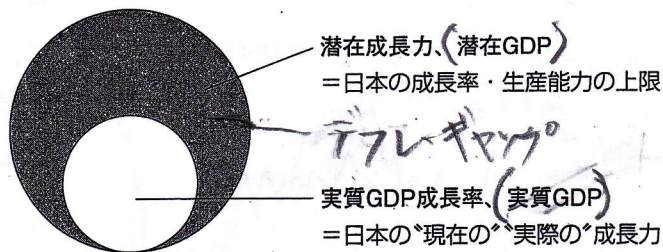 潜在成長力、(潜在GDP)
=日本の成長率・生産能力の上限
デフレギャップ
実質GDP成長率、(実質GDP)
=日本の〝現在の〞〝実際の〞成長力